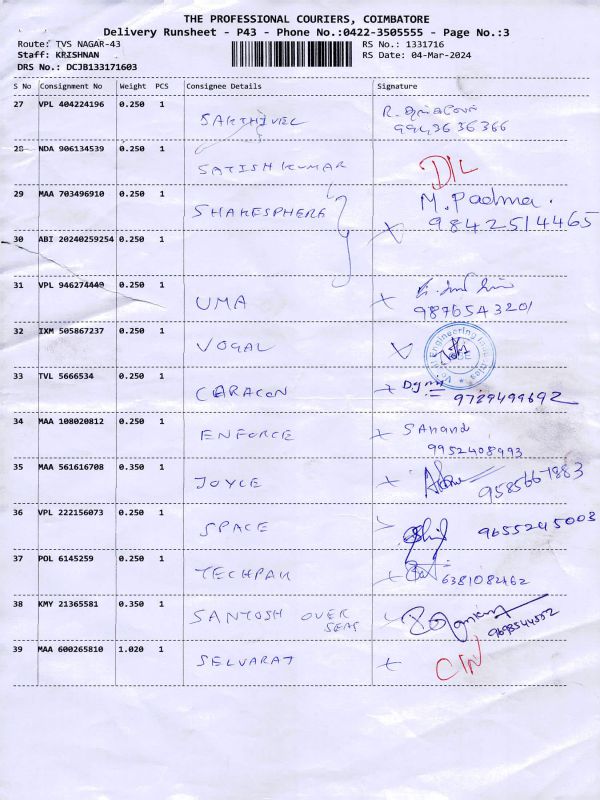 THE PROFESSIONAL COURIERS, COIMBATORE
Delivery Runsheet - P43 - Phone No.:0422-3505555 - Page No.:3
Route: TVS NAGAR-43 RS No.: 1331716
Staff: KRISHNAN RS Date: 04-Mar-2024
DRS No.: DCJB133171603
S No Consignment No Weight PCS Consignee Details Signature
27 VPL 404224196 0.250 1
SAKTHIVEL R.
9943636366
28 NDA 906134539 0.250 1
SATISH KUMAR D/L
29 MAA 703496910 0.250 1
SHAKESPHERE M.Padma.
9842514465
30 ABI 20240259254 0.250 1
31 VPL 946274449 0.250 1
UMA 9876543201
32 IXM 505867237 0.250 1
VOGAL
33 TVL 5666534 0.250 1
CARACON 9789499692
34 MAA 108020812 0.250 1
ENFORCE SAnand
9952408993
35 MAA 561616708 0.350 1
JOYCE 9585667883
36 VPL 222156073 0.250 1
SPACE 9655245003
37 POL 6145259 0.250 1
TECHPAK 6381082462
38 KMY 21365581 0.350 1
SANTOSH OVER
SEAS 9698544552
39 MAA 600265810 1.020 1
SELVARAJ C/N